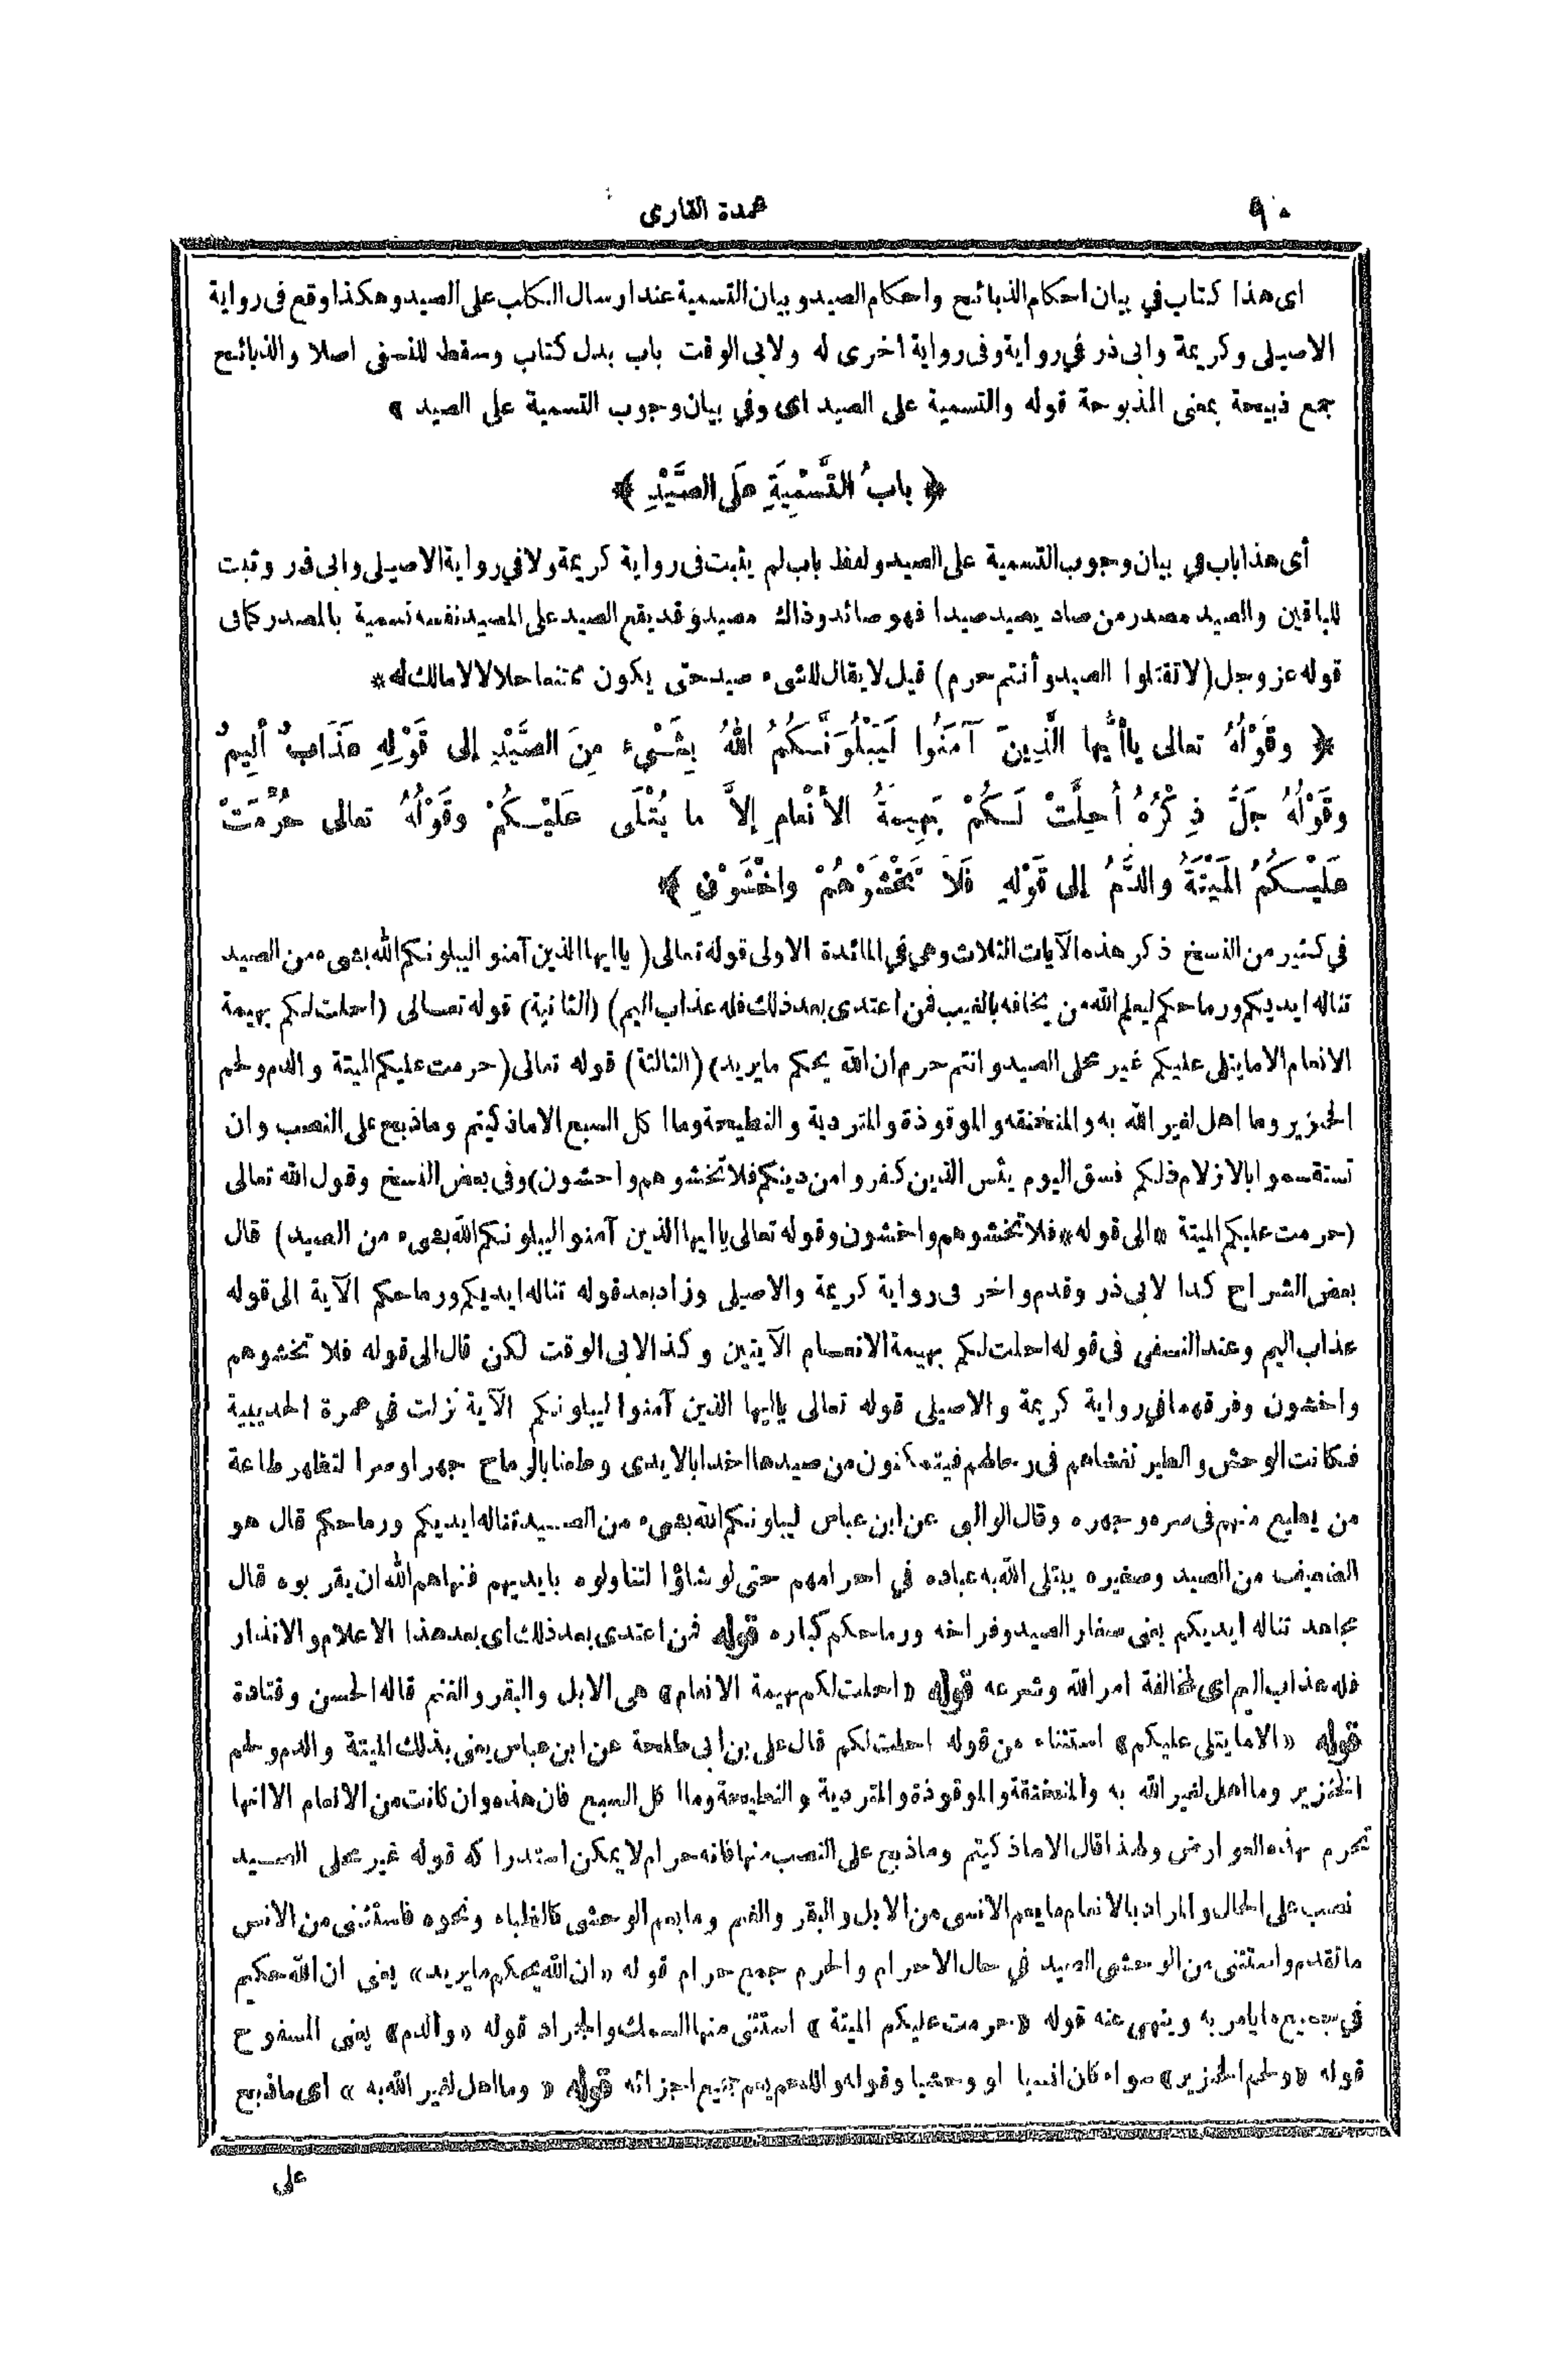 ٩٠
عمدة القارى
اى هذا كتاب في بيان احكام الذبائح واحكام الصيد وبيان التسمية عند ارسال الكلب على الصيد وهكذا وقع فى رواية
الاصيلى وكريمة وابى ذر في رواية وفى رواية اخرى له ولابى الوقت باب بدل كتاب وسقط للنسفى اصلا والذبائح
جمع ذبيحة بمعنى المذبوحة قوله والتسمية على الصيد اى وفي بيان وجوب التسمية على الصيد *
﴿ بابُ التَّسْمِيَةِ عَلَى الصَّيْدِ ﴾
أى هذا باب في بيان وجوب التسمية على الصيد ولفظ باب لم يثبت فى رواية كريمة ولا في رواية الاصيلى وابى ذر وثبت
للباقين والصيد مصدر من صاد يصيد صيدا فهو صائد وذاك مصيد وقد يقع الصيد على المصيد نفسه تسمية بالمصدر كما فى
قوله عز وجل (لا تقتلوا الصيد وأنتم حرم) قيل لا يقال للشىء صيد حتى يكون ممتنعا حلالا لا مالك له *
﴿ وقَوْلُهُ تعالى ياأيُّها الَّذِينَ آمَنُوا لَيَبْلُوَنَّكُمُ اللهُ بِشَىْءٍ مِنَ الصَّيْدِ إلى قَوْلِهِ عَذَابٌ ألِيمٌ
وقَوْلُهُ جَلَّ ذِكْرُهُ أُحِلَّتْ لَكُمْ بَهِيمَةُ الأنْعامِ إلاَّ ما يُتْلَى عَلَيْكُمْ وقَوْلُهُ تعالى حُرِّمَتْ
عَلَيْكُمُ المَيْتَةُ والدَّمُ إلى قَوْلِهِ فَلاَ تَخْشَوْهُمْ واخْشَوْنِ ﴾
في كثير من النسخ ذكر هذه الآيات الثلاث وهي في المائدة الاولى قوله تعالى ( ياايها الذين آمنوا ليبلونكم الله بشىء من الصيد
تناله ايديكم ورماحكم ليعلم الله من يخافه بالغيب فمن اعتدى بعد ذلك فله عذاب اليم) (الثانية) قوله تعالى (احلت لكم بهيمة
الانعام الا ما يتلى عليكم غير محلى الصيد وانتم حرم ان الله يحكم ما يريد) (الثالثة) قوله تعالى (حرمت عليكم الميتة والدم ولحم
الخنزير وما اهل لغير الله به والمنخنقه والموقوذة والمتردية والنطيحة وما ا كل السبع الا ما ذكيتم وما ذبح على النصب وان
تستقسموا بالازلام ذلكم فسق اليوم يئس الذين كفروا من دينكم فلا تخشوهم واخشون) وفى بعض النسخ وقول الله تعالى
(حرمت عليكم الميتة «الى قوله» فلا تخشوهم واخشون وقوله تعالى ياايها الذين آمنوا ليبلونكم الله بشىء من الصيد) قال
بعض الشراح كذا لابى ذر وقدم واخر فى رواية كريمة والاصيلى وزاد بعد قوله تناله ايديكم ورماحكم الآية الى قوله
عذاب اليم وعند النسفى فى قوله احلت لكم بهيمة الانعام الآيتين وكذا لابى الوقت لكن قال الى قوله فلا تخشوهم
واخشون وفرقهما في رواية كريمة والاصيلى قوله تعالى ياايها الذين آمنوا ليبلونكم الآية نزلت في عمرة الحديبية
فكانت الوحش والطير تغشاهم فى رحالهم فيتمكنون من صيدها اخذا بالايدى وطعنا بالرماح جهرا وسرا لتظهر طاعة
من يطيع منهم فى سره وجهره وقال الوالبى عن ابن عباس ليبلونكم الله بشىء من الصيد تناله ايديكم ورماحكم قال هو
الضعيف من الصيد وصغيره يبتلى الله به عباده في احرامهم حتى لو شاؤا لتناولوه بايديهم فنهاهم الله ان يقربوه قال
مجاهد تناله ايديكم يعنى صغار الصيد وفراخه ورماحكم كباره قوله فمن اعتدى بعد ذلك اى بعد هذا الاعلام والانذار
فله عذاب اليم اى لمخالفة امر الله وشرعه قوله «احلت لكم بهيمة الانعام» هى الابل والبقر والغنم قاله الحسن وقتادة
قوله «الا ما يتلى عليكم» استثناء من قوله احلت لكم قال على بن ابى طلحة عن ابن عباس يعنى بذلك الميتة والدم ولحم
الخنزير وما اهل لغير الله به والمنخنقة والموقوذة والمتردية والنطيحة وما ا كل السبع فان هذه وان كانت من الانعام الا انها
تحرم بهذه العوارض ولهذا قال الا ما ذكيتم وما ذبح على النصب منها فانه حرام لا يمكن استدراكه قوله غير محلى الصيد
نصب على الحال والمراد بالانعام ما يعم الانسى من الابل والبقر والغنم وما يعم الوحشى كالظباء ونحوه فاستثنى من الانس
ما تقدم واستثنى من الوحشى الصيد في حال الاحرام والحرم جمع حرام قوله «ان الله يحكم ما يريد» يعنى ان الله حكيم
في جميع ما يامر به وينهى عنه قوله «حرمت عليكم الميتة» استثنى منها السمك والجراد قوله «والدم» يعنى المسفوح
قوله «ولحم الخنزير» سواء كان انسيا او وحشيا وقوله واللحم يعم جميع اجزائه قوله «وما اهل لغير الله به» اى ما ذبح
على